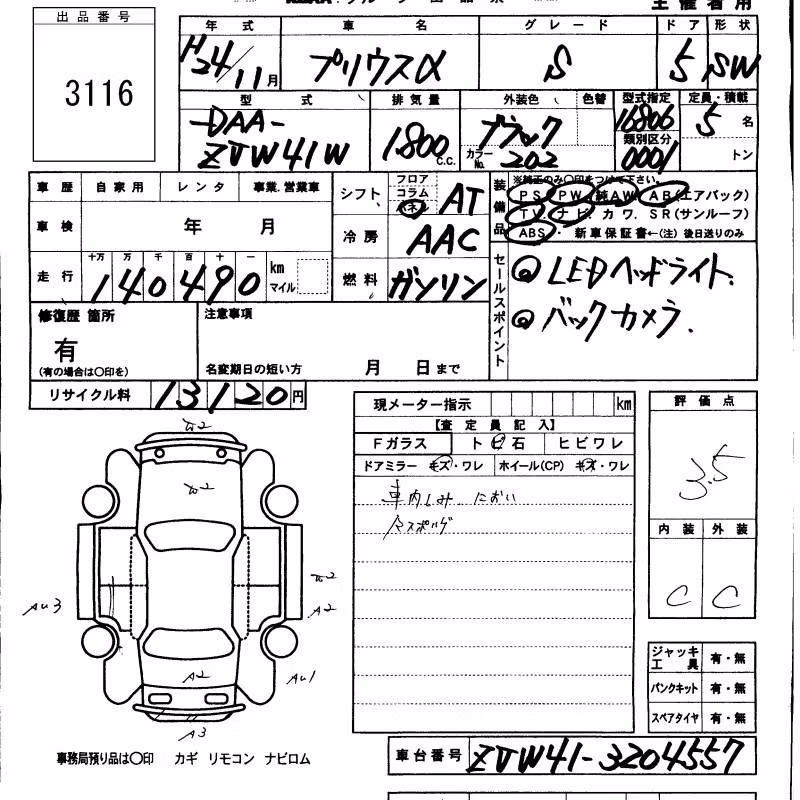 主催者用
出品番号
3116
年式 車名 グレード ドア 形状
H24/11月 プリウスα S 5 SW
型式 排気量 外装色 色替 型式指定 定員・積載
DAA- ZVW41W 1800 C.C. ブラック 16806 5名
カラーNo. 202 類別区分 0001 トン
車歴 自家用 レンタ 事業.営業車
シフト フロア コラム インパネ AT
装備品 ※純正のみ〇印をつけて下さい。
PS PW 純AW AB(エアバック)
TV ナビ カワ. SR(サンルーフ)
ABS ・ 新車保証書←(注) 後日送りのみ
車検 年 月
冷房 AAC
走行 十万 万 千 百 十 一
140490 km マイル
燃料 ガソリン
セールスポイント
◎ LEDヘッドライト.
◎ バックカメラ.
修復歴 箇所
有
(有の場合は〇印を)
注意事項
名変期日の短い方 月 日まで
リサイクル料 13120円
現メーター指示 km
【査定員記入】
Fガラス トビ石 ヒビワレ
ドアミラー キズ・ワレ ホイール(CP) キズ・ワレ
車内しみ におい
評価点
3.5
内装 外装
C C
A2
AU3
A2
AU1
A3
ジャッキ工具 有・無
パンクキット 有・無
スペアタイヤ 有・無
事務局預り品は〇印 カギ リモコン ナビロム
車台番号 ZVW41-3204557